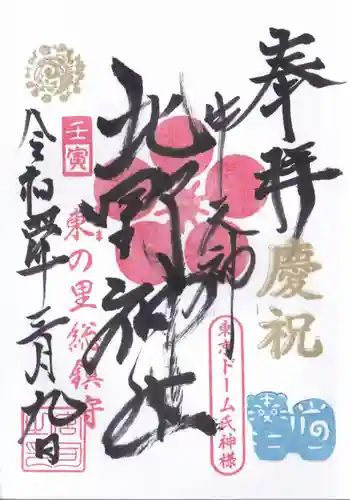 奉拝
慶祝
牛天神
東京ドーム氏神様
北野神社
壬寅
東の里総鎮守
令和四年二月九日